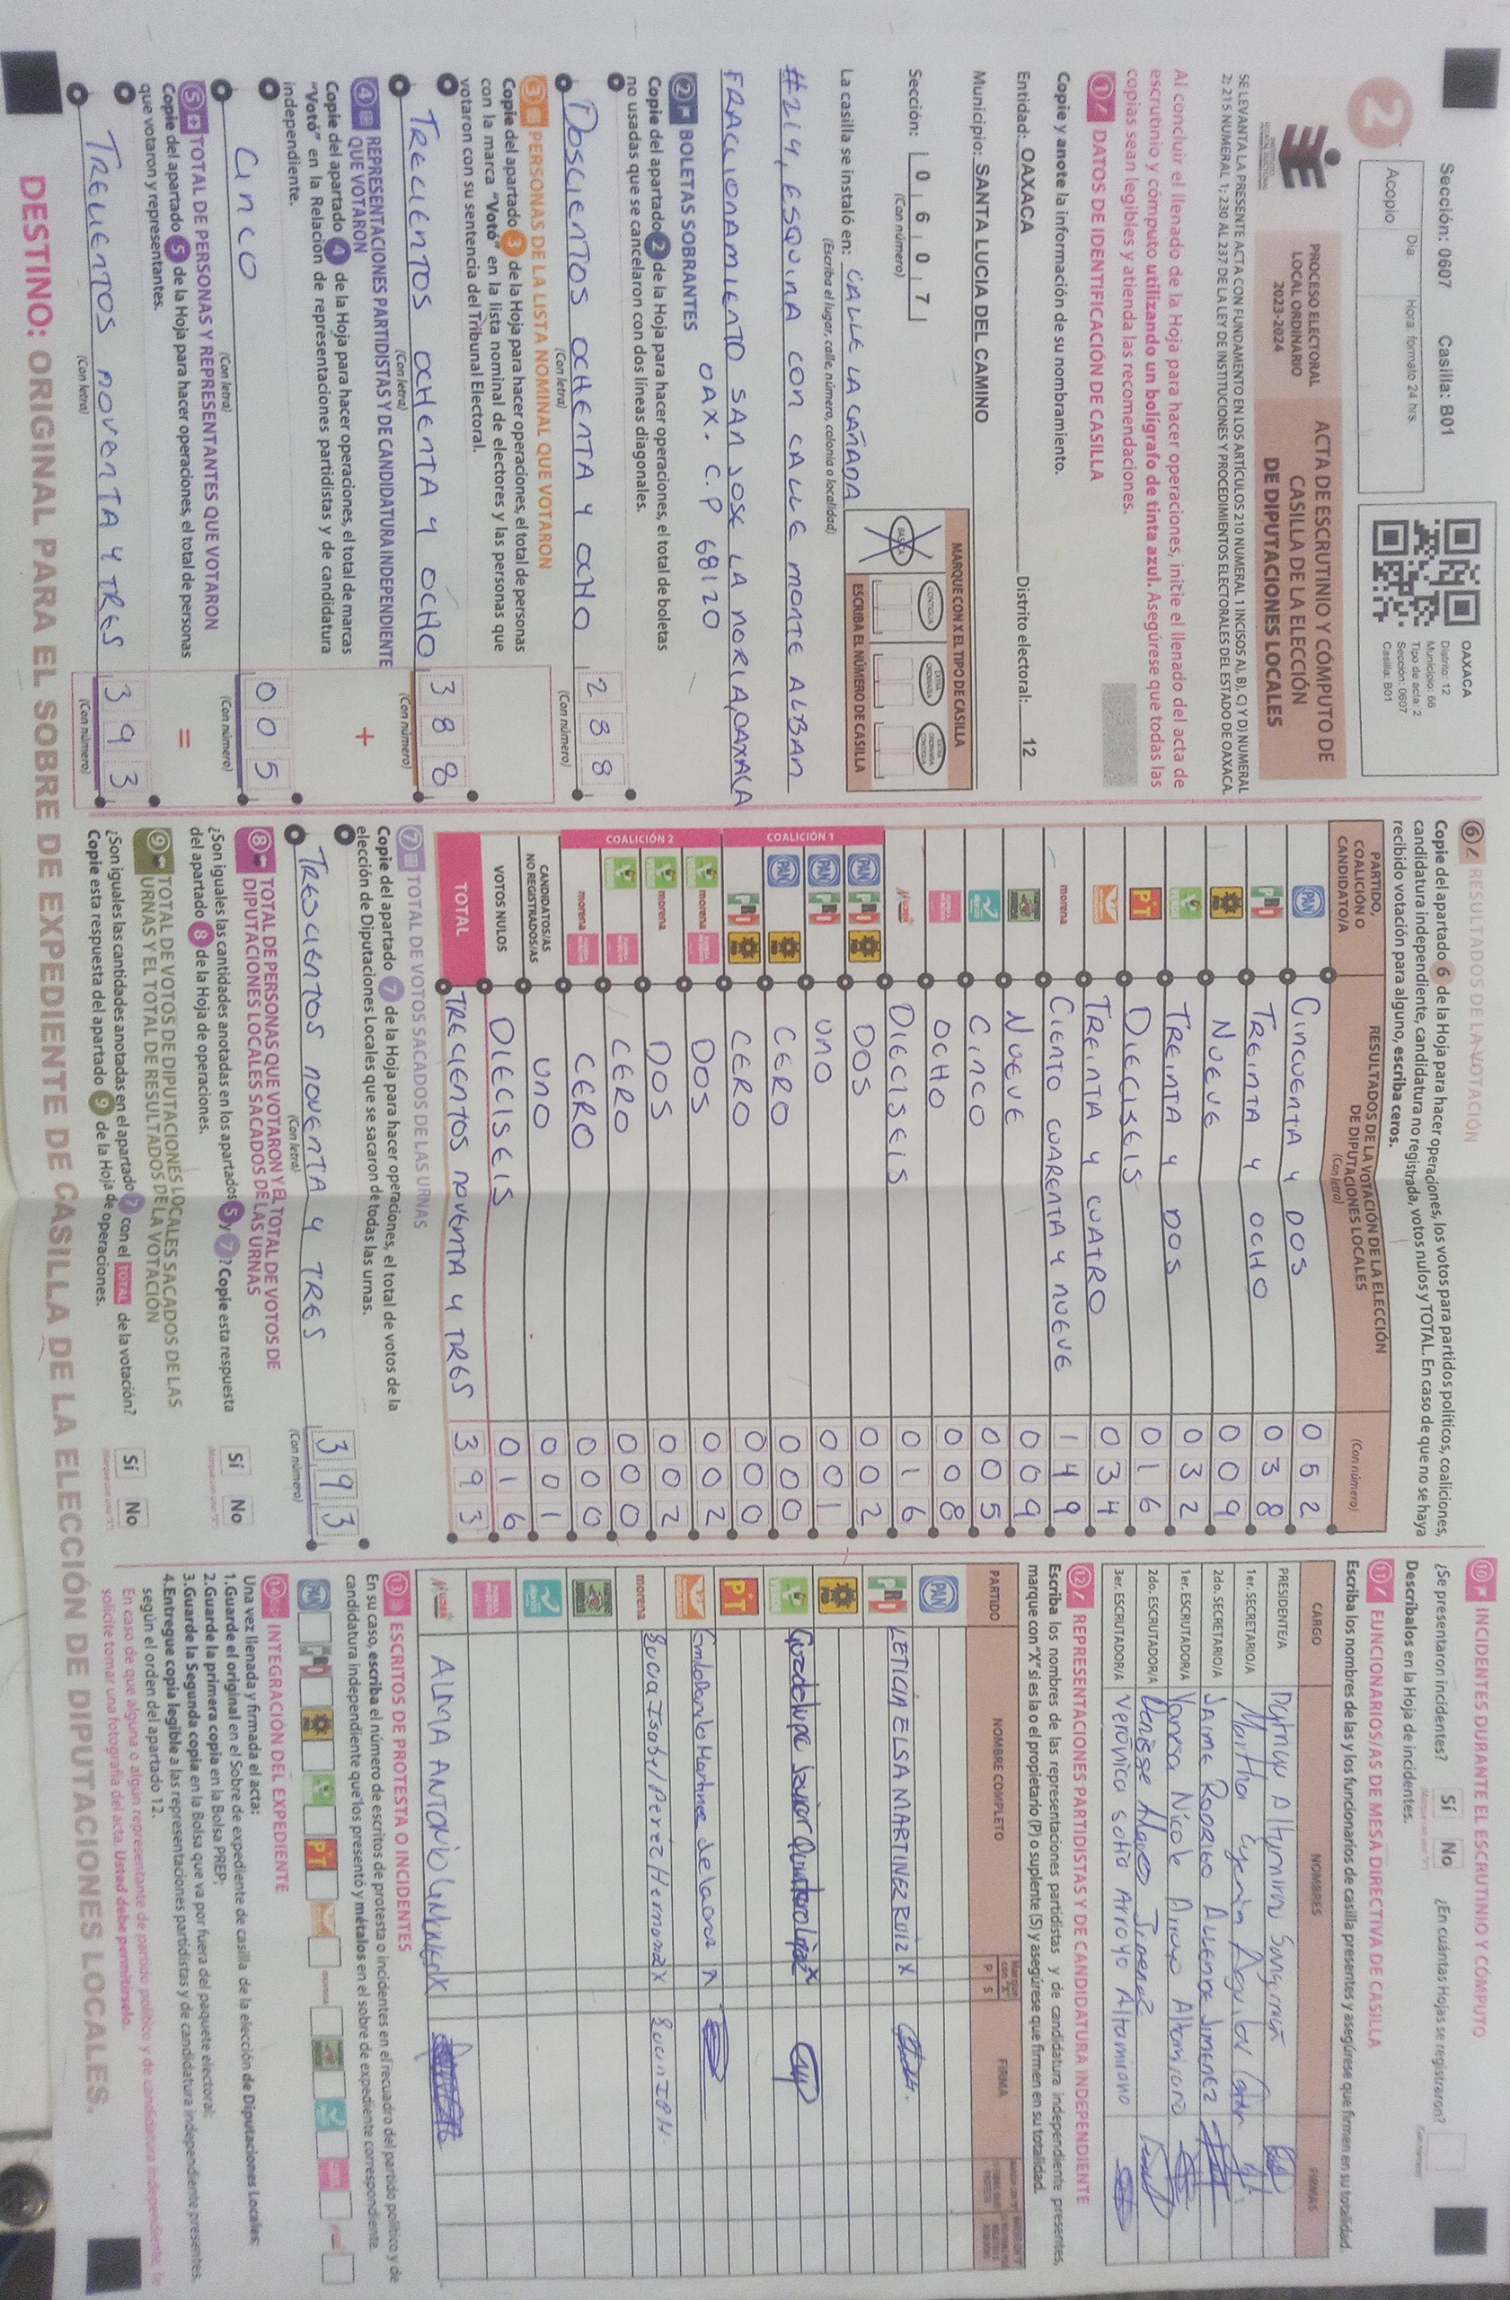 Sección: 0607 Casilla: B01
2
Día: Hora: formato 24 hrs.
Acopio
OAXACA
Distrito: 12
Municipio: 66
Tipo de acta: 2
Sección: 0607
Casilla: B01
PROCESO ELECTORAL
LOCAL ORDINARIO
2023-2024
ACTA DE ESCRUTINIO Y CÓMPUTO DE
CASILLA DE LA ELECCIÓN
DE DIPUTACIONES LOCALES
SE LEVANTA LA PRESENTE ACTA CON FUNDAMENTO EN LOS ARTÍCULOS 210 NUMERAL 1 INCISOS A), B), C) Y D) NUMERAL
2; 215 NUMERAL 1; 230 AL 237 DE LA LEY DE INSTITUCIONES Y PROCEDIMIENTOS ELECTORALES DEL ESTADO DE OAXACA.
Al concluir el llenado de la Hoja para hacer operaciones, inicie el llenado del acta de
escrutinio y cómputo utilizando un bolígrafo de tinta azul. Asegúrese que todas las
copias sean legibles y atienda las recomendaciones.
1 DATOS DE IDENTIFICACIÓN DE CASILLA
Copie y anote la información de su nombramiento.
Entidad: OAXACA Distrito electoral: 12
Municipio: SANTA LUCIA DEL CAMINO
Sección: 0 6 0 7
(Con número)
MARQUE CON X EL TIPO DE CASILLA
BÁSICA CONTIGUA
ESCRIBA EL NÚMERO DE CASILLA
La casilla se instaló en: CALLE LA CAÑADA
(Escriba el lugar, calle, número, colonia o localidad)
#214, ESQUINA CON CALLE MONTE ALBAN
FRACCIONAMIENTO SAN JOSE LA NORIA, OAXACA
OAX. C.P 68120
2 BOLETAS SOBRANTES
Copie del apartado 2 de la Hoja para hacer operaciones, el total de boletas
no usadas que se cancelaron con dos líneas diagonales.
DOSCIENTOS OCHENTA Y OCHO 2 8 8
(Con letra) (Con número)
3 PERSONAS DE LA LISTA NOMINAL QUE VOTARON
Copie del apartado 3 de la Hoja para hacer operaciones, el total de personas
con la marca "Votó" en la lista nominal de electores y las personas que
votaron con su sentencia del Tribunal Electoral.
TRECIENTOS OCHENTA Y OCHO 3 8 8
(Con letra) (Con número)
4 REPRESENTACIONES PARTIDISTAS Y DE CANDIDATURA INDEPENDIENTE
QUE VOTARON
+
Copie del apartado 4 de la Hoja para hacer operaciones, el total de marcas
"Votó" en la Relación de representaciones partidistas y de candidatura
independiente.
CINCO 0 0 5
(Con letra) (Con número)
5 TOTAL DE PERSONAS Y REPRESENTANTES QUE VOTARON
=
Copie del apartado 5 de la Hoja para hacer operaciones, el total de personas
que votaron y representantes.
TRECIENTOS NOVENTA Y TRES 3 9 3
(Con letra) (Con número)
6 RESULTADOS DE LA VOTACIÓN
Copie del apartado 6 de la Hoja para hacer operaciones, los votos para partidos políticos, coaliciones,
candidatura independiente, candidatura no registrada, votos nulos y TOTAL. En caso de que no se haya
recibido votación para alguno, escriba ceros.
PARTIDO,
COALICIÓN O
CANDIDATO/A
RESULTADOS DE LA VOTACIÓN DE LA ELECCIÓN
DE DIPUTACIONES LOCALES
(Con letra) (Con número)
PAN CINCUENTA Y DOS 0 5 2
PRI TREINTA Y OCHO 0 3 8
PRD NUEVE 0 0 9
TREINTA Y DOS 0 3 2
PT DIECISEIS 0 1 6
TREINTA Y CUATRO 0 3 4
morena CIENTO CUARENTA Y NUEVE 1 4 9
NUEVE 0 0 9
CINCO 0 0 5
OCHO 0 0 8
DIECISEIS 0 1 6
COALICIÓN 1
PAN PRI PRD DOS 0 0 2
PAN PRI UNO 0 0 1
PAN PRD CERO 0 0 0
PRI PRD CERO 0 0 0
COALICIÓN 2
morena DOS 0 0 2
morena DOS 0 0 2
CERO 0 0 0
morena CERO 0 0 0
CANDIDATOS/AS
NO REGISTRADOS/AS UNO 0 0 1
VOTOS NULOS DIECISEIS 0 1 6
TOTAL TRECIENTOS NOVENTA Y TRES 3 9 3
7 TOTAL DE VOTOS SACADOS DE LAS URNAS
Copie del apartado 7 de la Hoja para hacer operaciones, el total de votos de la
elección de Diputaciones Locales que se sacaron de todas las urnas.
TRESCIENTOS NOVENTA Y TRES 3 9 3
(Con letra) (Con número)
8 TOTAL DE PERSONAS QUE VOTARON Y EL TOTAL DE VOTOS DE
DIPUTACIONES LOCALES SACADOS DE LAS URNAS
¿Son iguales las cantidades anotadas en los apartados 5 y 7? Copie esta respuesta
del apartado 8 de la Hoja de operaciones.
Sí No
9 TOTAL DE VOTOS DE DIPUTACIONES LOCALES SACADOS DE LAS
URNAS Y EL TOTAL DE RESULTADOS DE LA VOTACIÓN
¿Son iguales las cantidades anotadas en el apartado 7 con el TOTAL de la votación?
Copie esta respuesta del apartado 9 de la Hoja de operaciones.
Sí No
10 INCIDENTES DURANTE EL ESCRUTINIO Y CÓMPUTO
¿Se presentaron incidentes? Sí No ¿En cuántas Hojas se registraron?
(Con número)
Descríbalos en la Hoja de incidentes.
11 FUNCIONARIOS/AS DE MESA DIRECTIVA DE CASILLA
Escriba los nombres de las y los funcionarios de casilla presentes y asegúrese que firmen en su totalidad.
CARGO NOMBRES FIRMAS
PRESIDENTE/A
1er. SECRETARIO/A Martha Eugenia Aguilar
2do. SECRETARIO/A JAIME RODRIGO ALLENDE JIMENEZ
1er. ESCRUTADOR/A Vanesa Nicole Arroyo Altamirano
2do. ESCRUTADOR/A Denisse Jimenez
3er. ESCRUTADOR/A Verónica Sofia Arroyo Altamirano
12 REPRESENTACIONES PARTIDISTAS Y DE CANDIDATURA INDEPENDIENTE
Escriba los nombres de las representaciones partidistas y de candidatura independiente presentes,
marque con "X" si es la o el propietario (P) o suplente (S) y asegúrese que firmen en su totalidad.
PARTIDO NOMBRE COMPLETO P S FIRMA
PAN
PRI LETICIA ELSA MARTINEZ RUIZ X
PRD
Guadalupe Javier Quintero López X
PT
Emilio Danilo Martinez de la Cruz X
morena Sucu Isabel Perez Hernandez X
ALMA ANTONIO
13 ESCRITOS DE PROTESTA O INCIDENTES
En su caso, escriba el número de escritos de protesta o incidentes en el recuadro del partido político y de
candidatura independiente que los presentó y métalos en el sobre de expediente correspondiente.
PAN PRI PRD PT morena
14 INTEGRACIÓN DEL EXPEDIENTE
Una vez llenada y firmada el acta:
1.Guarde el original en el Sobre de expediente de casilla de la elección de Diputaciones Locales;
2.Guarde la primera copia en la Bolsa PREP;
3.Guarde la Segunda copia en la Bolsa que va por fuera del paquete electoral;
4.Entregue copia legible a las representaciones partidistas y de candidatura independiente presentes,
según el orden del apartado 12.
En caso de que alguna o algún representante de partido político y de candidatura independiente, le
solicite tomar una fotografía del acta. Usted debe permitírselo.
DESTINO: ORIGINAL PARA EL SOBRE DE EXPEDIENTE DE CASILLA DE LA ELECCIÓN DE DIPUTACIONES LOCALES.